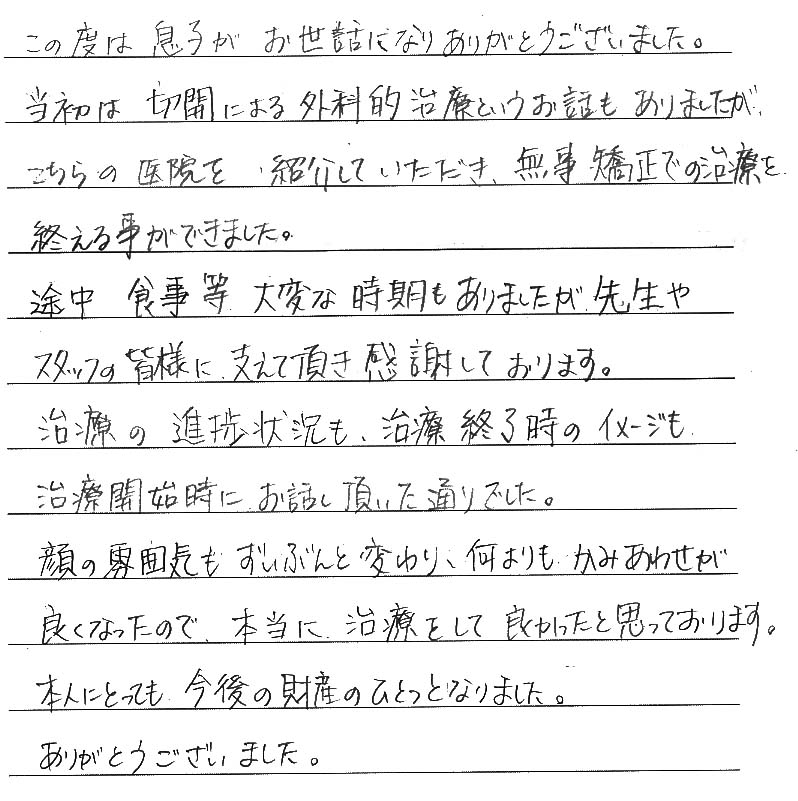 この度は 息子が お世話になりありがとうございました。
当初は 切開による外科的治療というお話も ありましたが、
こちらの 医院を 紹介して いただき、無事 矯正での治療を
終える事ができました。
途中 食事等 大変な 時期も ありましたが 先生や
スタッフの 皆様に 支えて頂き 感謝して おります。
治療の 進捗状況も、治療 終了時の イメージも
治療開始時に お話し 頂いた 通りでした。
顔の 雰囲気も ずいぶんと 変わり、何よりも かみあわせが
良くなったので、本当に 治療をして 良かったと思っております。
本人にとっても 今後の 財産の ひとつとなりました。
ありがとうございました。